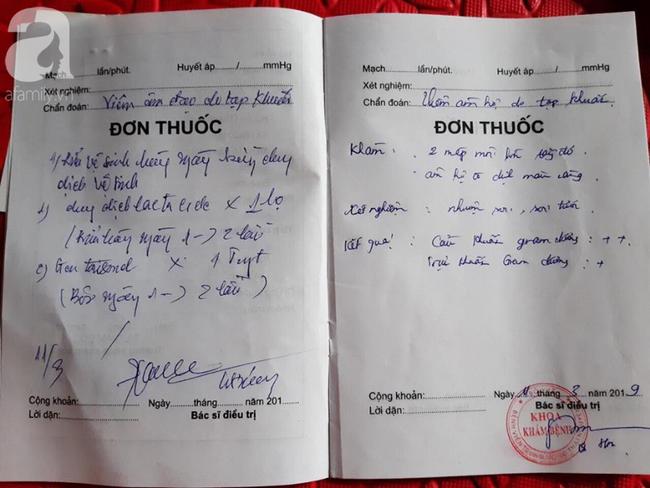 afamily.vn
Mạch............lần/phút. Huyết áp....../......mmHg
Xét nghiệm:
Chẩn đoán: Viêm âm đạo do tạp khuẩn
ĐƠN THUỐC
vệ sinh hàng ngày bằng dung
dịch vệ sinh
dung dịch lactacide x 1 lọ
ngày 1 -> 2 lần
x 1 Tuýp
(Bôi ngày 1 -> 2 lần)
11/3
Cộng khoản:............ Ngày......tháng......năm 201....
Lời dặn: Bác sĩ điều trị
Mạch............lần/phút. Huyết áp....../......mmHg
Xét nghiệm:
Chẩn đoán: Viêm âm hộ do tạp khuẩn
ĐƠN THUỐC
Khám: 2 mép môi lớn
âm hộ có dịch màu vàng
Xét nghiệm: nhuộm soi, soi tươi
Kết quả: Cầu khuẩn gram dương: ++
Trực khuẩn Gram dương: +
Cộng khoản:............ Ngày 11 tháng 3 năm 2019
Lời dặn: Bác sĩ điều trị
KHOA
KHÁM BỆNH